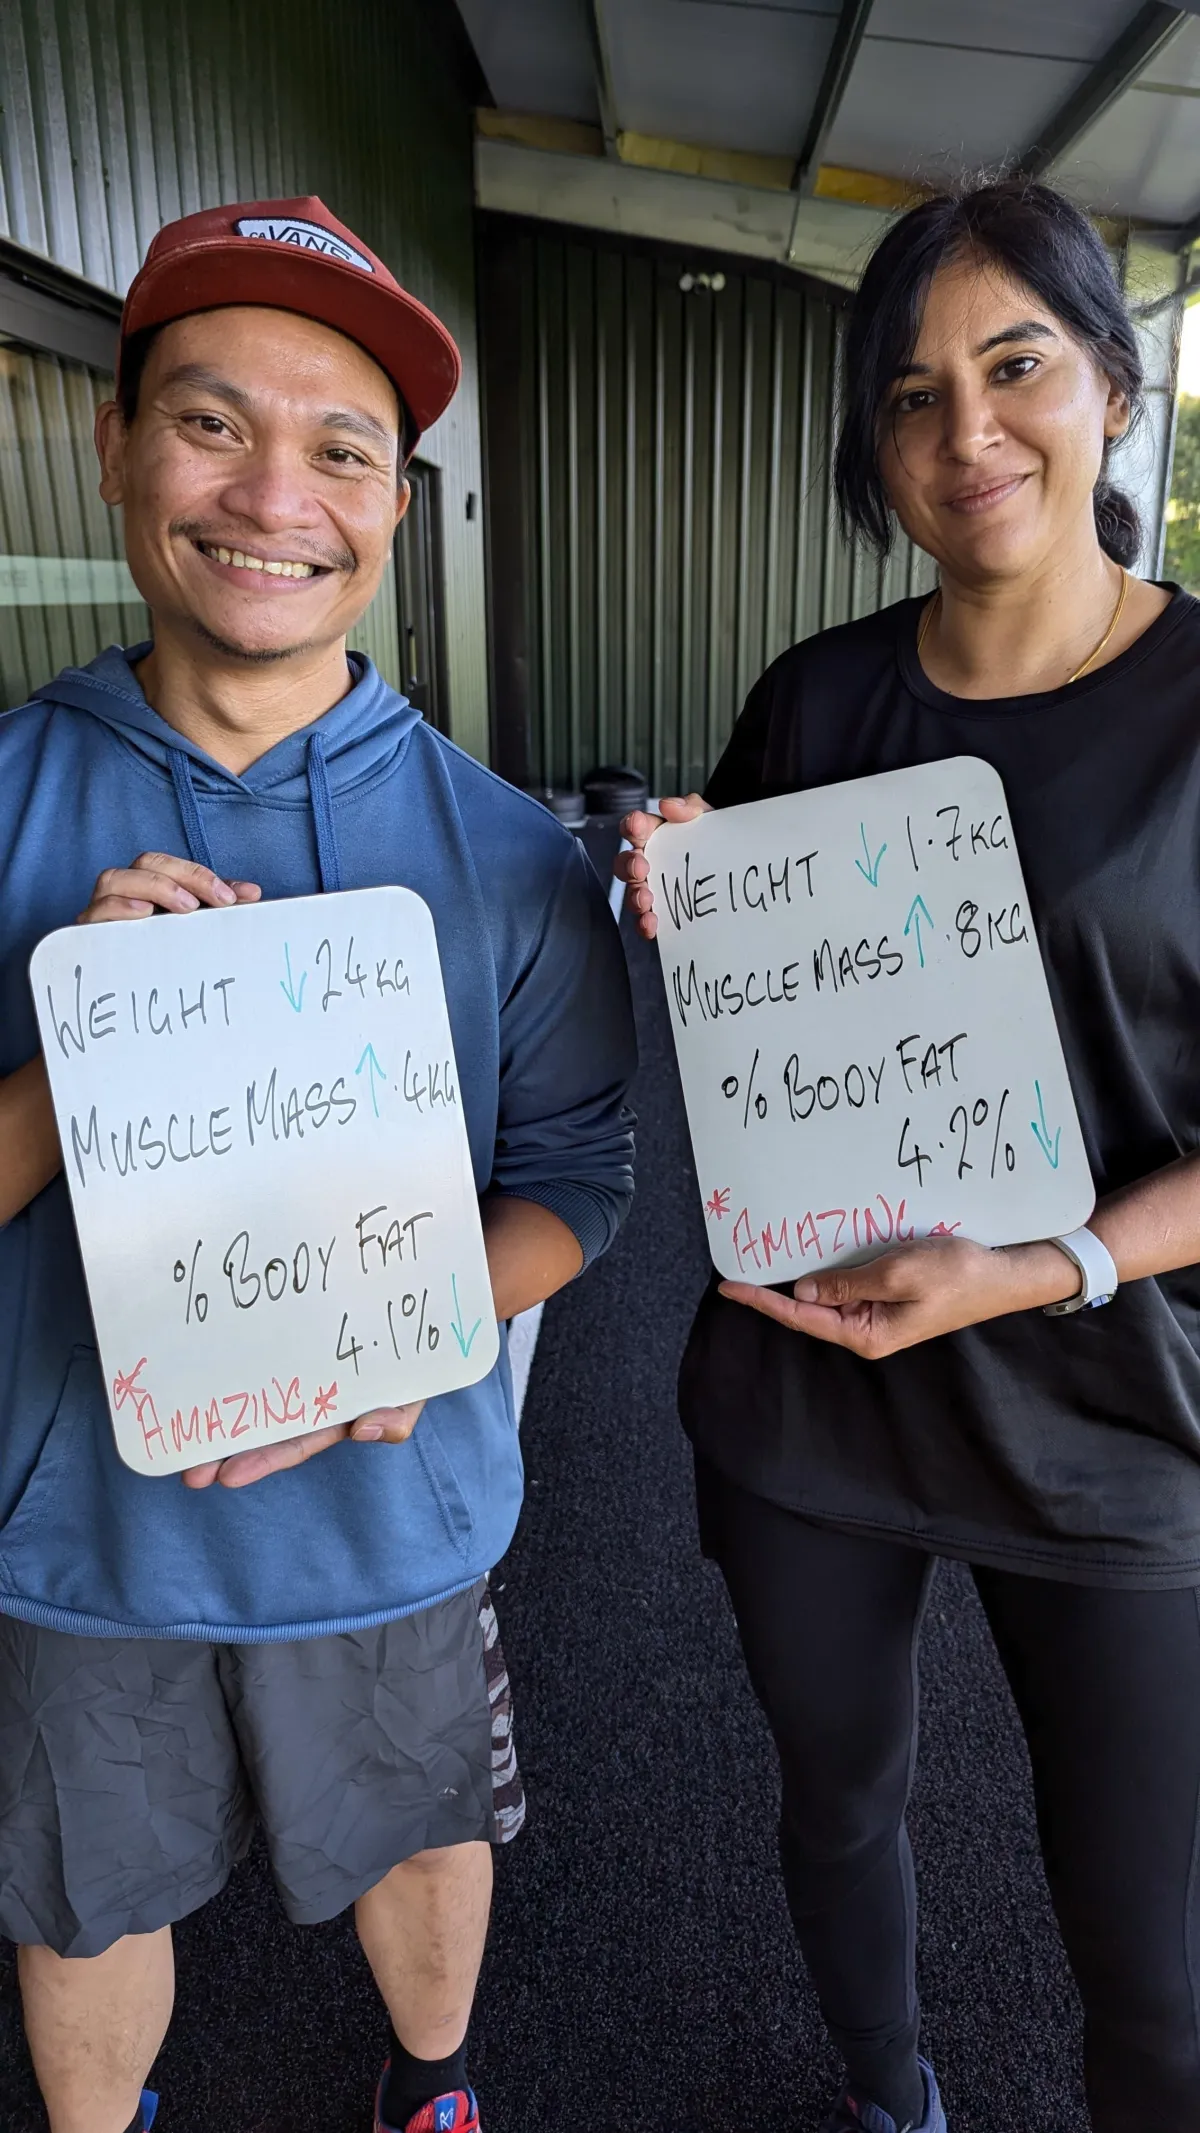 VANS
WEIGHT ↓ 24KG
MUSCLE MASS ↑ .4KG
% BODY FAT
4.1% ↓
*AMAZING*
WEIGHT ↓ 1.7KG
MUSCLE MASS ↑ .8KG
% BODY FAT
4.2% ↓
*AMAZING*